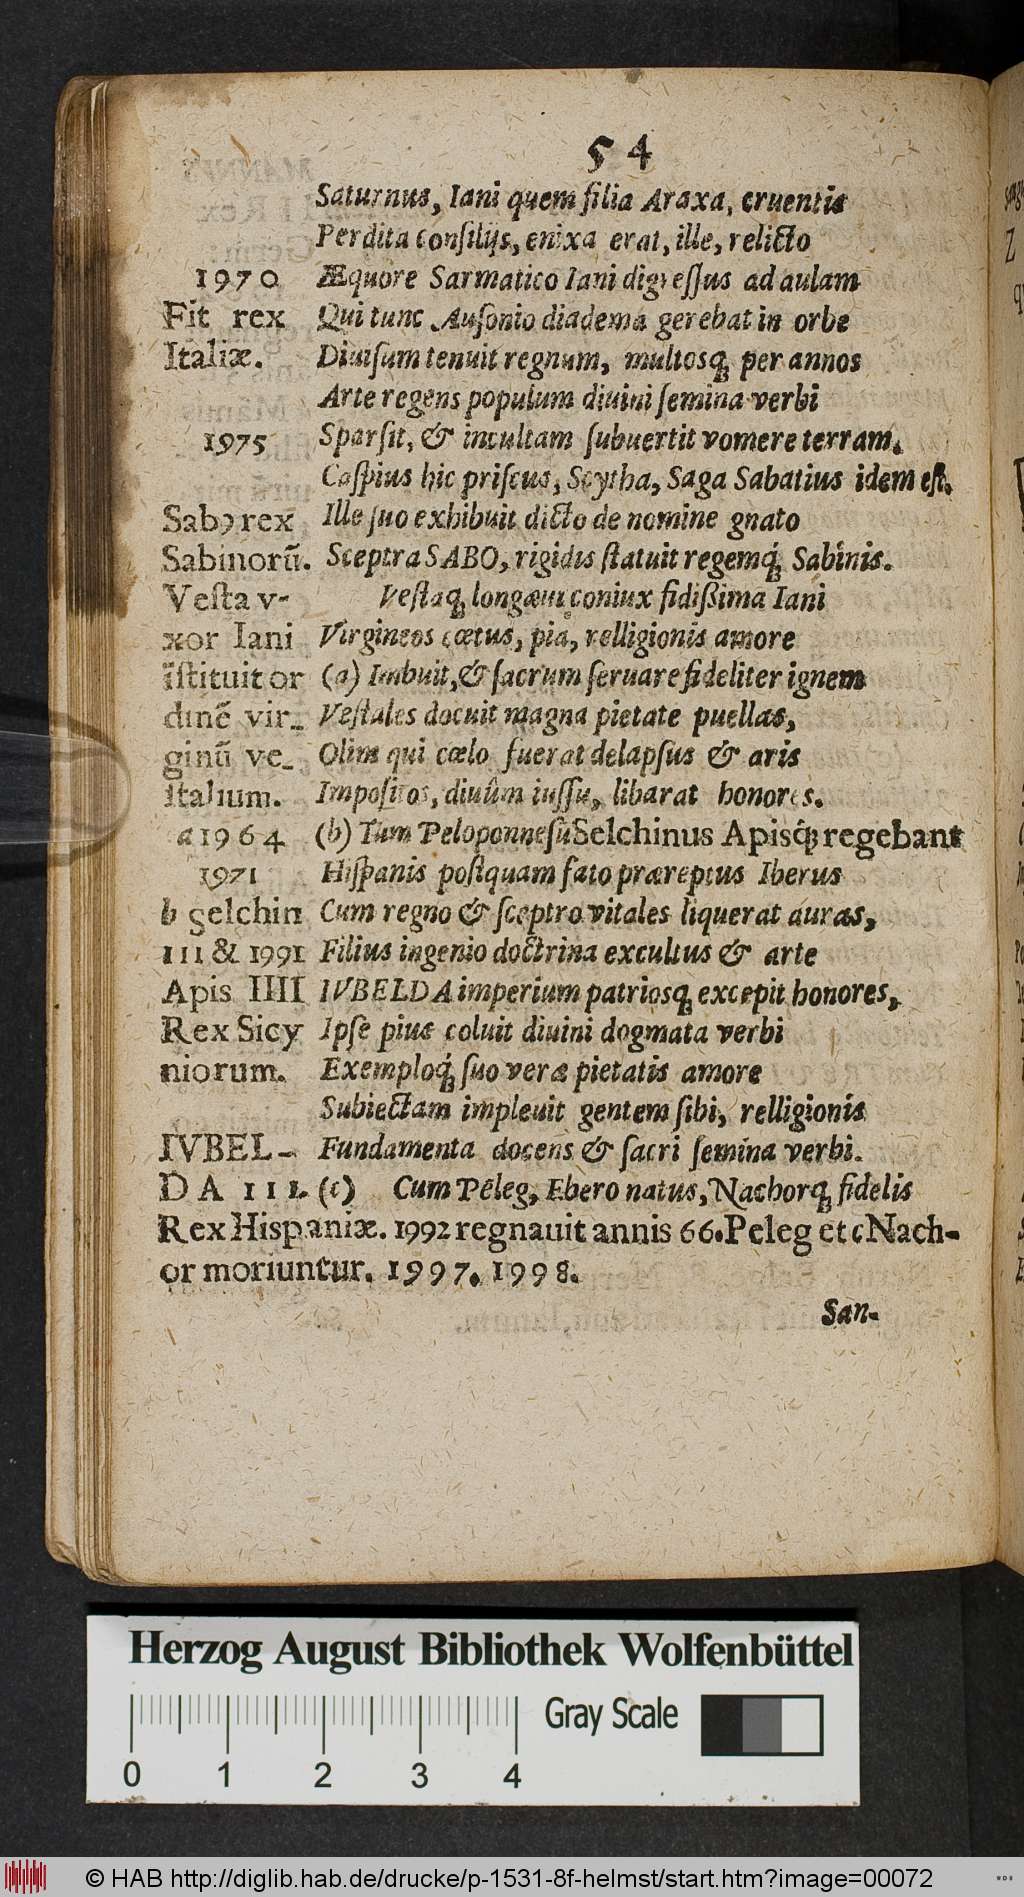 54
Saturnus, Iani quem filia Araxa, cruentis
Perdita consilijs, enixa erat, ille, relicto
1970 Æquore Sarmatico Iani digressus ad aulam
Fit rex Qui tunc Ausonio diadema gerebat in orbe
Italiæ. Diuisum tenuit regnum, multosq́; per annos
Arte regens populum diuini semina verbi
1975 Sparsit, & incultam subuertit vomere terram.
Caspius hic priscus, Scytha, Saga Sabatius idem est.
Sabꝰ rex Ille suo exhibuit dicto de nomine gnato
Sabinorũ. Sceptra SABO, rigidis statuit regemq́; Sabinis.
Vesta v- Vestaq; longæui coniux fidißima Iani
xor Iani Virgineos cœtus, pia, relligionis amore
ĩstituit or (a) Imbuit, & sacrum seruare fideliter ignem
dinẽ vir- Vestales docuit magna pietate puellas,
ginũ ve- Olim qui cœlo fuerat delapsus & aris
stalium. Impositos, diuûm iussu, libarat honores.
a 1964 (b) Tum Peloponnesũ Selchinus Apisq́; regebant
1971 Hispanis postquam fato præreptus Iberus
b selchin Cum regno & sceptro vitales liquerat auras,
III & 1991 Filius ingenio doctrina excultus & arte
Apis IIII IVBELDA imperium patriosq; excepit honores,
Rex Sicy Ipse pius coluit diuini dogmata verbi
niorum. Exemploq́; suo veræ pietatis amore
Subiectam impleuit gentem sibi, relligionis
IVBEL- Fundamenta docens & sacri semina verbi.
DA III. (c) Cum Peleg, Ebero natus, Nachorq; fidelis
Rex Hispaniæ. 1992 regnauit annis 66. Peleg et c Nach-
or moriuntur. 1997. 1998.
San-
Herzog August Bibliothek Wolfenbüttel
Gray Scale
0 1 2 3 4
© HAB http://diglib.hab.de/drucke/p-1531-8f-helmst/start.htm?image=00072